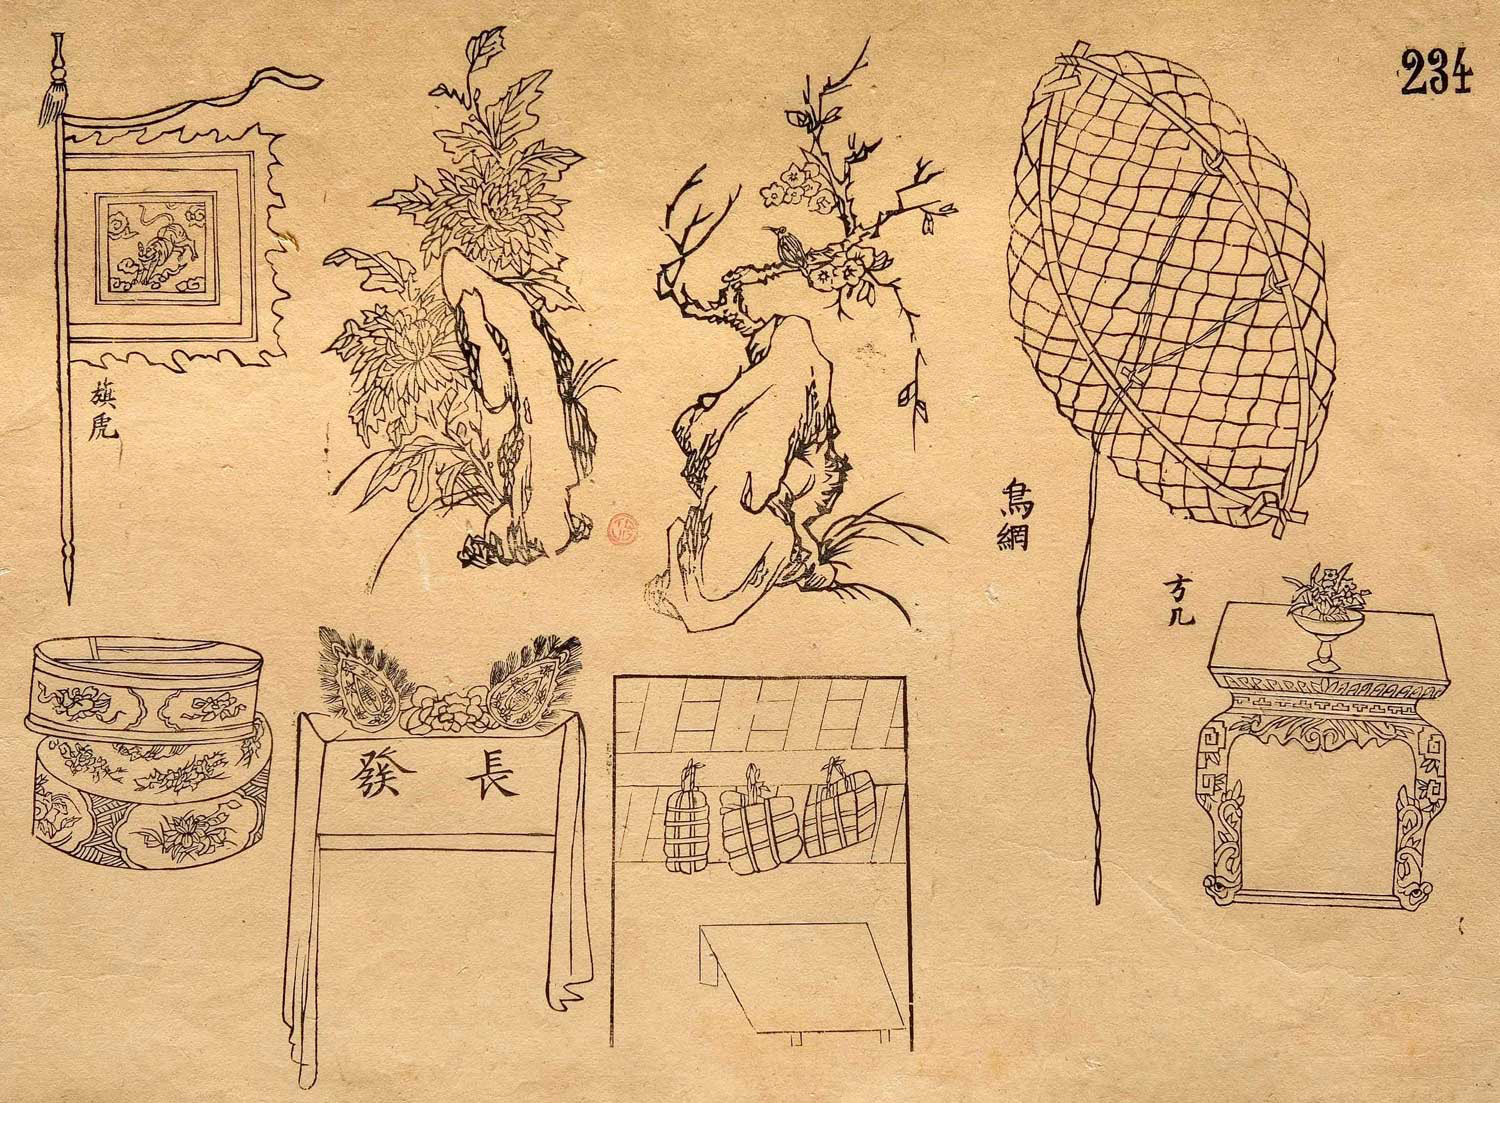 234
旗虎
鳥網
方几
發 長